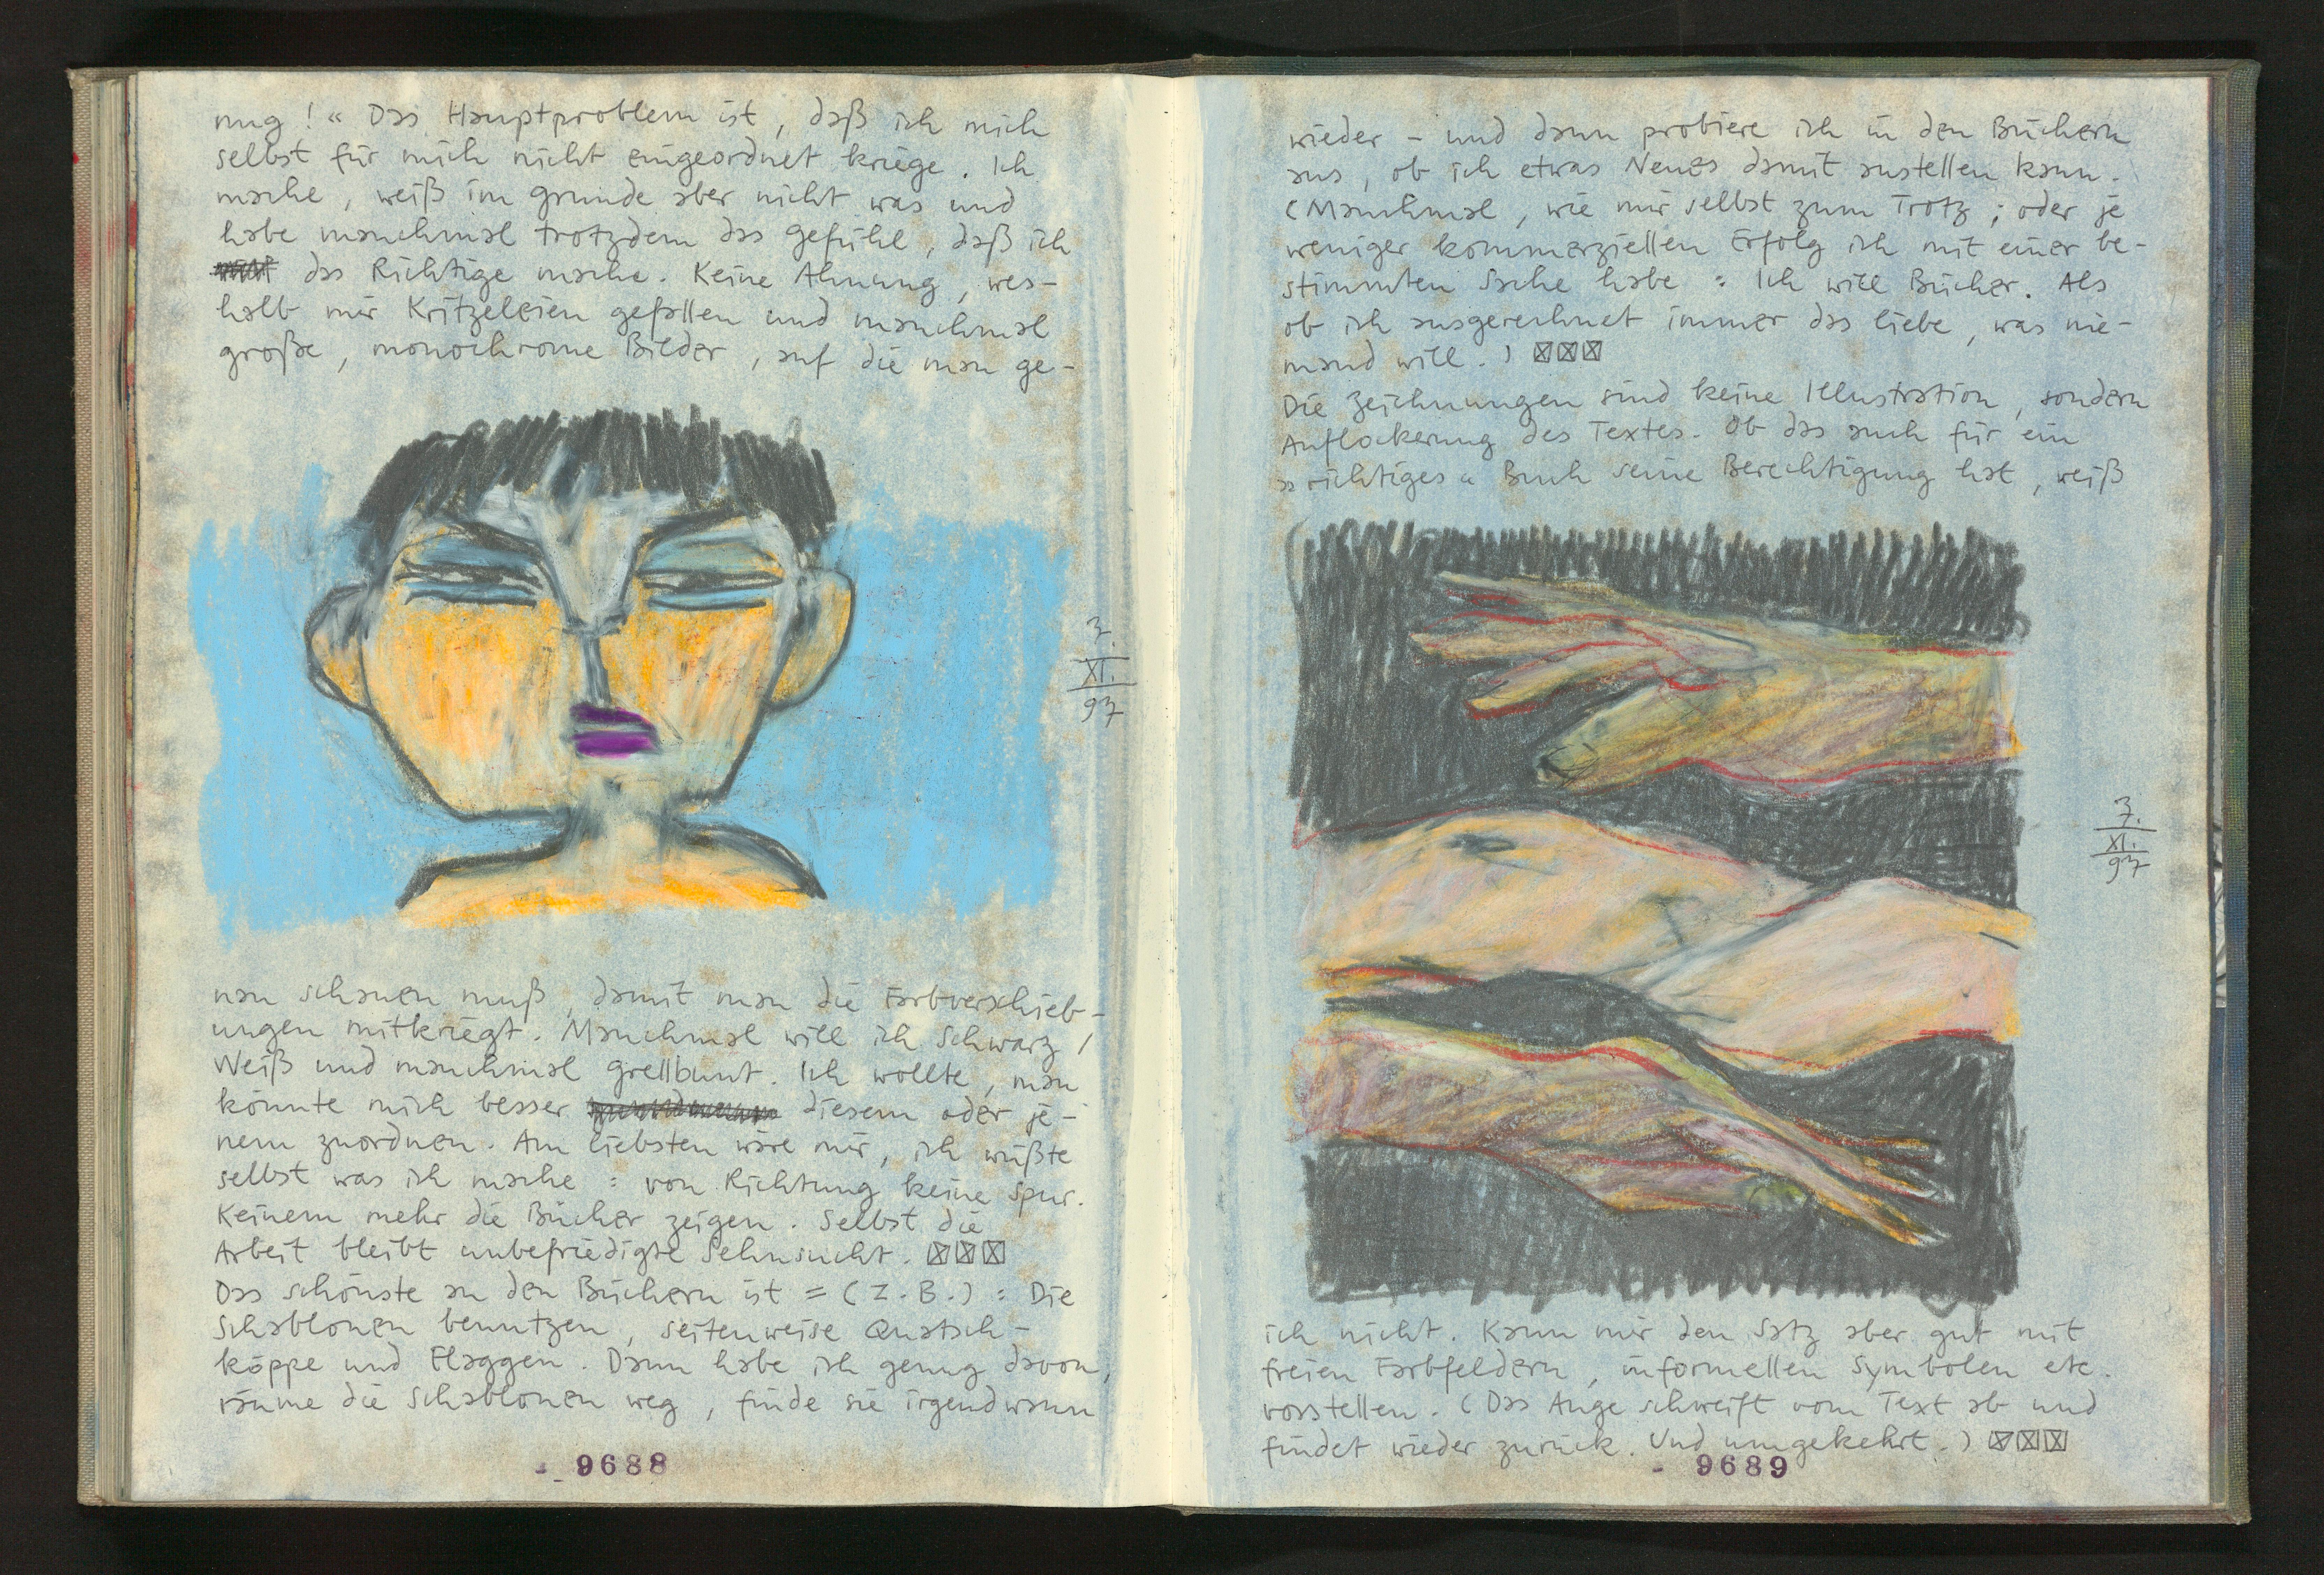 nug! « Das Hauptproblem ist, daß ich mich
selbst für mich nicht eingeordnet kriege. Ich
mache, weiß im Grunde aber nicht was und
habe manchmal trotzdem das Gefühl, daß ich
das Richtige mache. Keine Ahnung, wes-
halb mir Kritzeleien gefallen und manchmal
große, monochrome Bilder, auf die man ge-
3.
XI.
97
nau schauen muß, damit man die Farbverschieb-
ungen mitkriegt. Manchmal will ich Schwarz /
Weiß und manchmal grellbunt. Ich wollte, man
könnte mich besser diesem oder je-
nem zuordnen. Am liebsten wäre mir, ich wüßte
selbst was ich mache : von Richtung keine Spur.
Keinem mehr die Bücher zeigen. Selbst die
Arbeit bleibt unbefriedigte Sehnsucht. ☒☒☒
Das schönste an den Büchern ist = (z.B.) : Die
Schablonen benutzen, seitenweise Quatsch-
köppe und Flaggen. Dann habe ich genug davon,
räume die Schablonen weg, finde sie irgendwann
9688
wieder – und dann probiere ich in den Büchern
aus, ob ich etwas Neues damit anstellen kann.
(Manchmal, wie mir selbst zum Trotz ; oder je
weniger kommerziellen Erfolg ich mit einer be-
stimmten Sache habe : Ich will Bücher. Als
ob ich ausgerechnet immer das liebe, was nie-
mand will.) ☒☒☒
Die Zeichnungen sind keine Illustration, sondern
Auflockerung des Textes. Ob das auch für ein
» richtiges « Buch seine Berechtigung hat, weiß
7.
XI.
97
ich nicht. Kann mir den Satz aber gut mit
freien Farbfeldern, informellen Symbolen etc.
vorstellen. (Das Auge schweift vom Text ab und
findet wieder zurück. Und umgekehrt.) ☒☒☒
9689